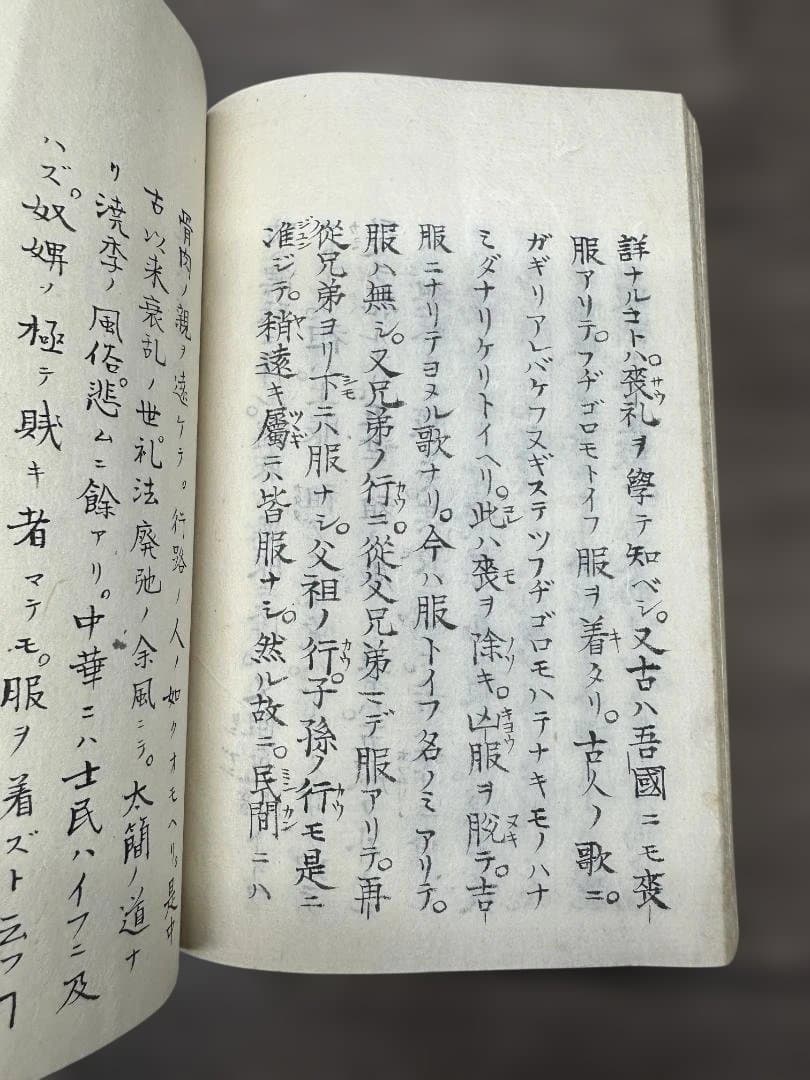 詳ナルコトハ。喪礼ヲ學テ知ベシ。又古ハ吾國ニモ喪
服アリテ。フヂゴロモトイフ服ヲ着タリ。古人ノ歌ニ。
ガギリアレバケフヌギステツフヂゴロモハテナキモノハナ
ミダナリケリトイヘリ。此ハ喪ヲ除キ。凶服ヲ脱テ。吉
服ニナリテヨメル歌ナリ。今ハ服トイフ名ノミアリテ。
服ハ無シ。又兄弟ノ行ニ。從父兄弟マデ服アリテ。再
從兄弟ヨリ下ニハ服ナシ。父祖ノ行。子孫ノ行モ是ニ
准ジテ。稍遠キ屬ニハ皆服ナシ。然ル故ニ。民間ニハ
骨肉ノ親ヲ遠ケテ。行路ノ人ノ如クオモヘリ。是中
古以来衰乱ノ世。礼法廃弛ノ余風ニテ。太簡ノ道ナ
リ澆季ノ風俗。悲ムニ餘アリ。中華ニハ士民ハイフニ及
ハズ。奴婢ノ極テ賎キ者マテモ。服ヲ着ズト云フ